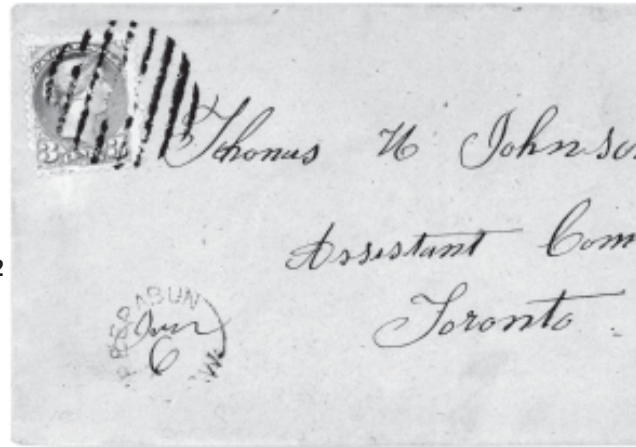 Thomas H Johnson
Assistant Com
Toronto
2
ABUN
Jun
6
3 3